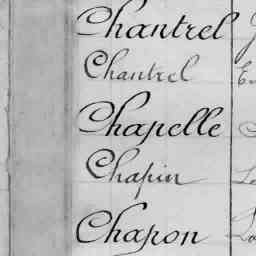 Chantrel
Chantrel
Chapelle
Chapin
Chapon